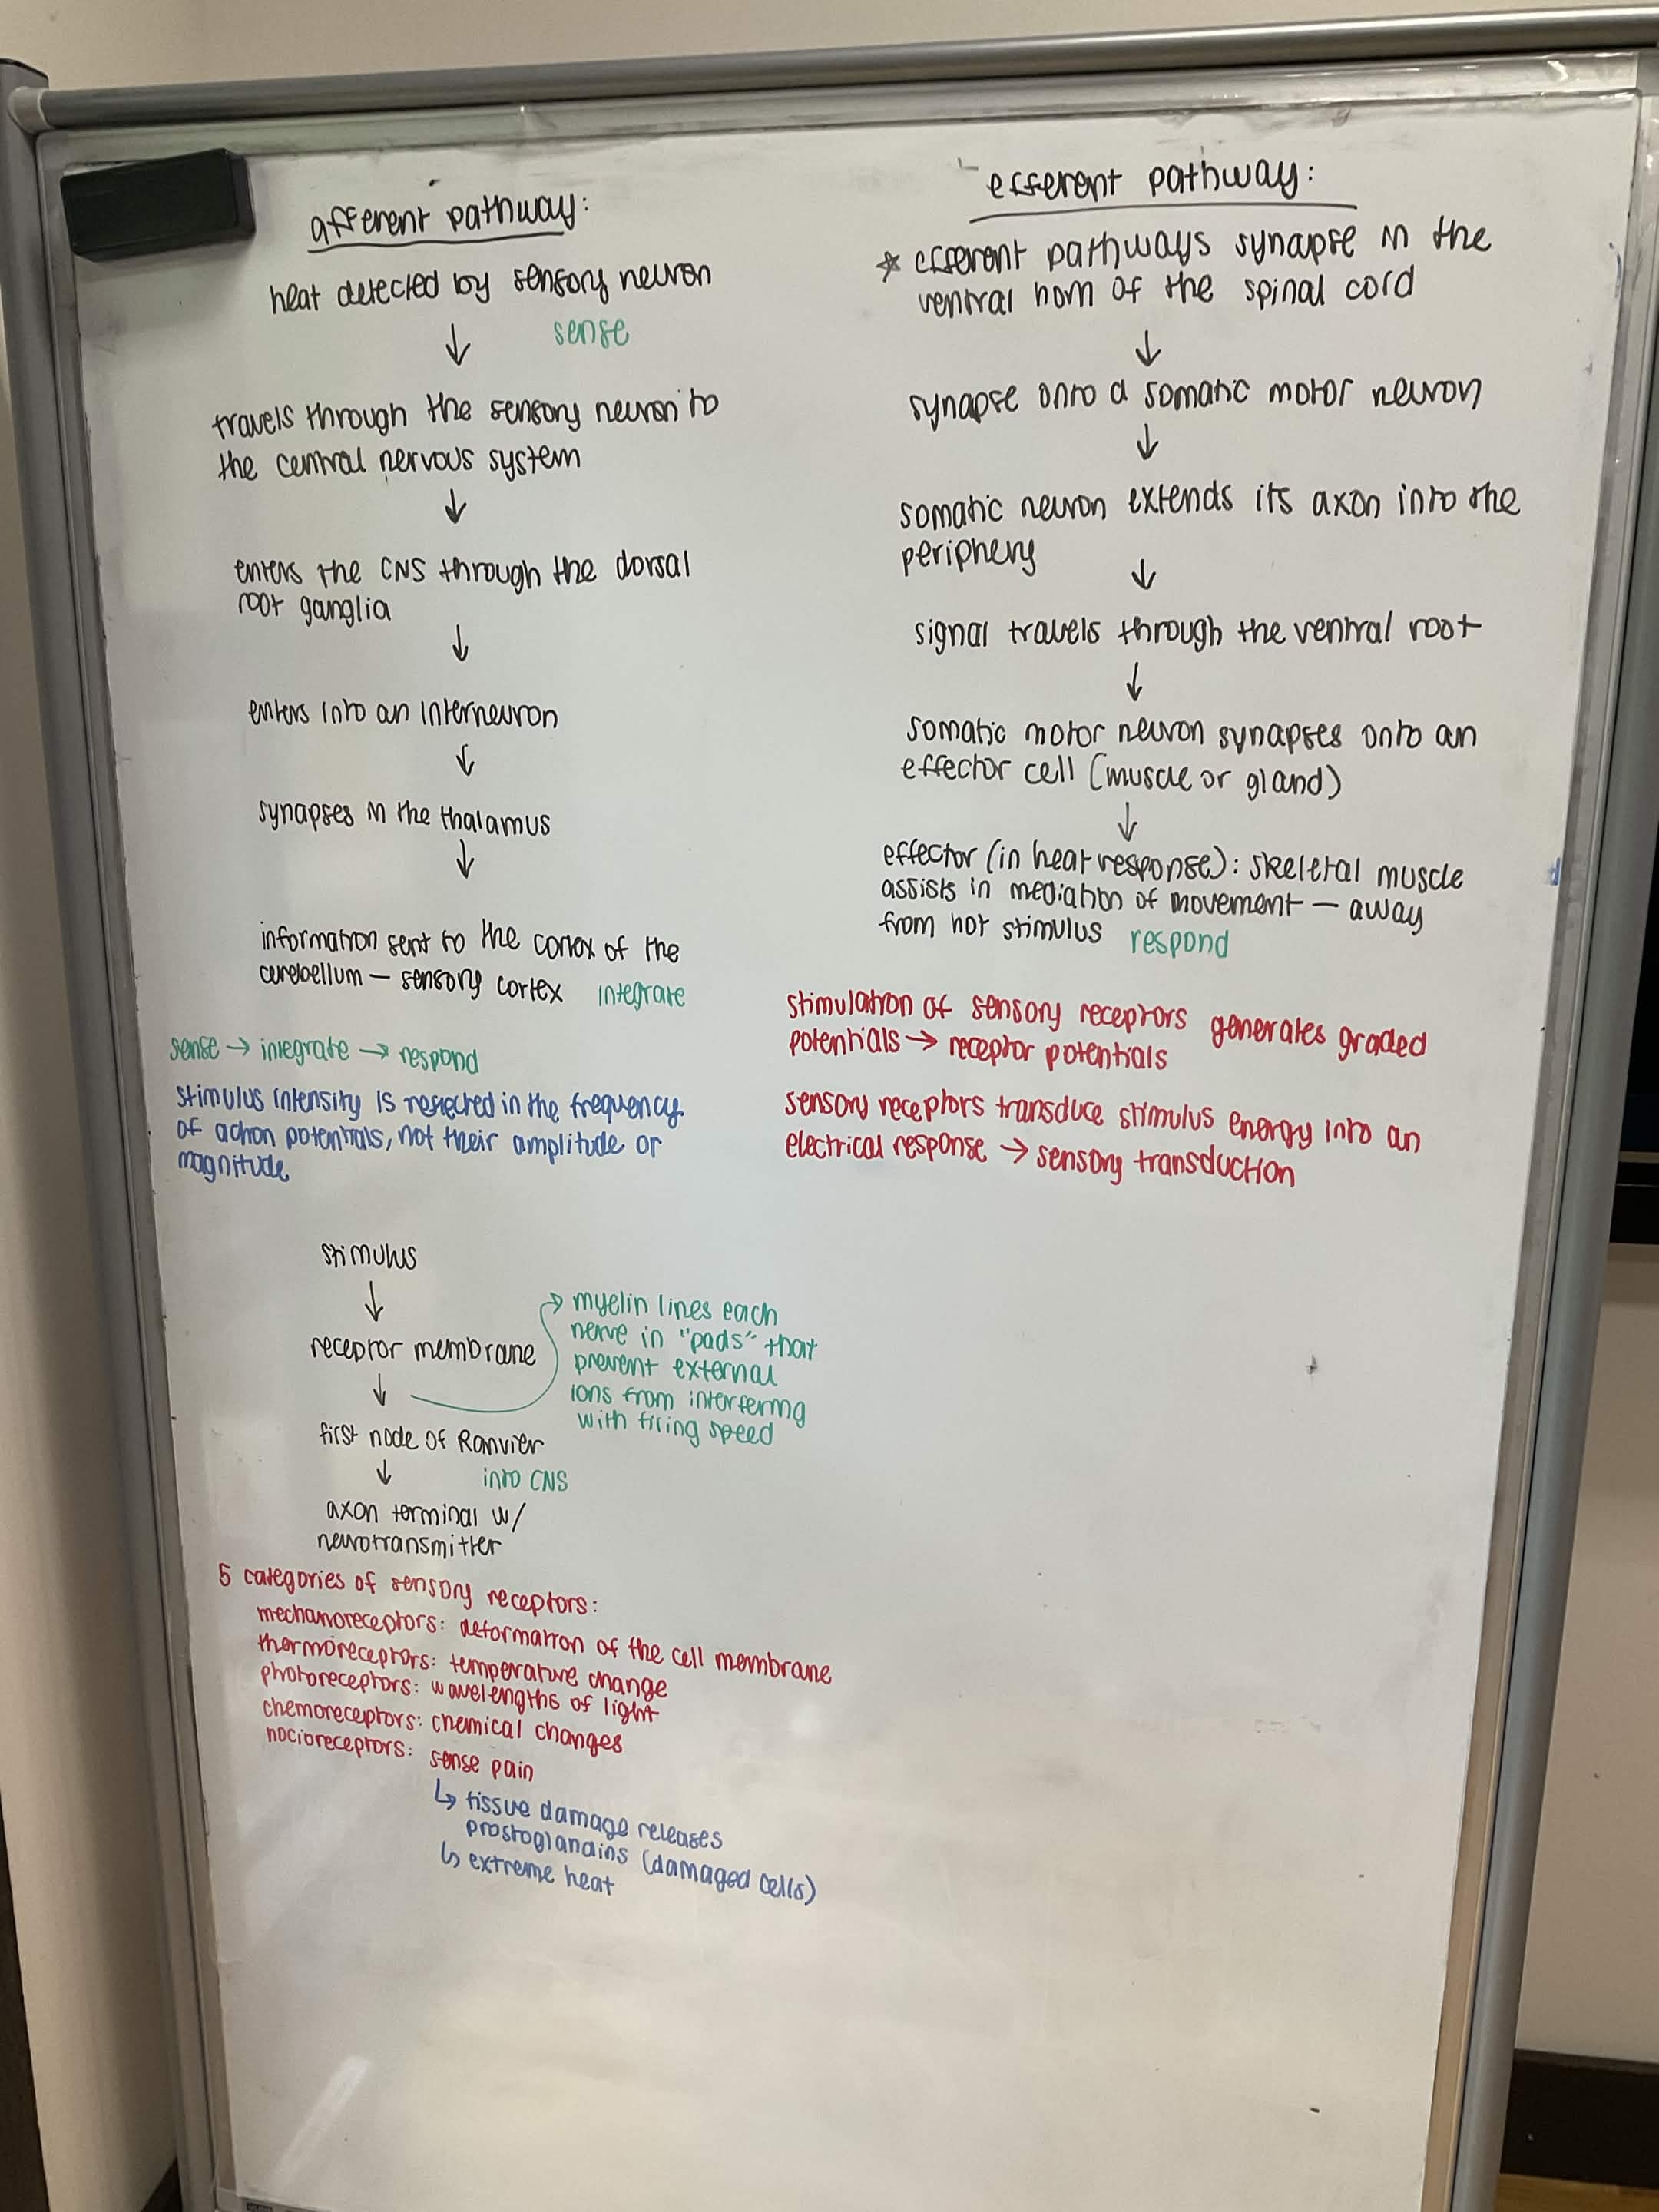 afferent pathway:
heat detected by sensory neuron
↓ sense
travels through the sensory neuron to
the central nervous system
↓
enters the CNS through the dorsal
root ganglia
↓
enters into an interneuron
↓
synapses in the thalamus
↓
information sent to the cortex of the
cerebellum — sensory cortex integrate
sense → integrate → respond
stimulus intensity is reflected in the frequency
of action potentials, not their amplitude or
magnitude
efferent pathway:
* efferent pathways synapse in the
ventral horn of the spinal cord
↓
synapse onto a somatic motor neuron
↓
somatic neuron extends its axon into the
periphery
↓
signal travels through the ventral root
↓
somatic motor neuron synapses onto an
effector cell (muscle or gland)
↓
effector (in heat response): skeletal muscle
assists in mediation of movement — away
from hot stimulus respond
stimulation of sensory receptors generates graded
potentials → receptor potentials
sensory receptors transduce stimulus energy into an
electrical response → sensory transduction
stimulus
↓
receptor membrane
↓
first node of Ranvier
↓ into CNS
axon terminal w/
neurotransmitter
→ myelin lines each
nerve in "pads" that
prevent external
ions from interfering
with firing speed
5 categories of sensory receptors:
mechanoreceptors: deformation of the cell membrane
thermoreceptors: temperature change
photoreceptors: wavelengths of light
chemoreceptors: chemical changes
nocioreceptors: sense pain
↳ tissue damage releases
prostoglandins (damaged cells)
↳ extreme heat